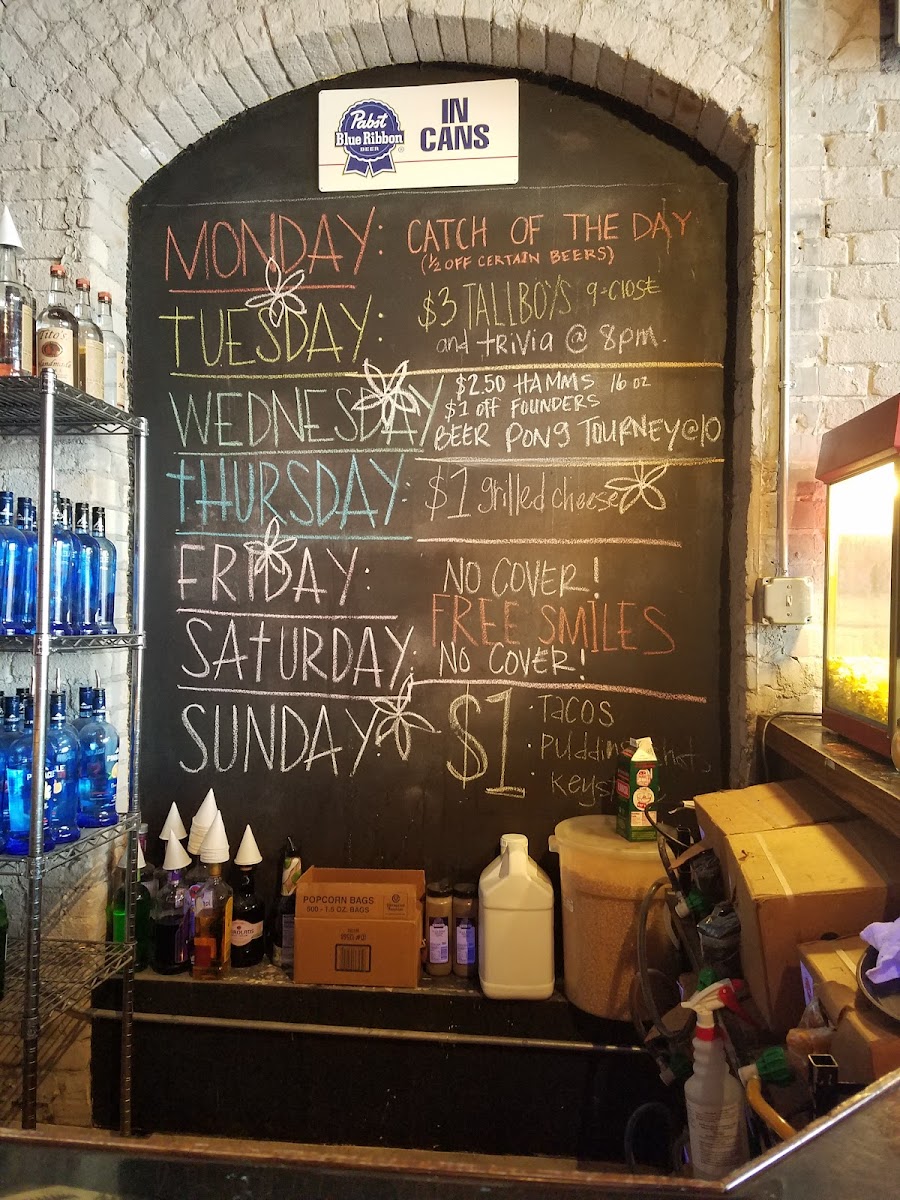 Pabst
Blue Ribbon
BEER
IN
CANS
MONDAY: CATCH OF THE DAY
(½ OFF CERTAIN BEERS)
TUESDAY: $3 TALLBOYS 9-CLOSE
and tRiViA @ 8pm.
WEDNESDAY $2.50 HAMMS 16 oz
$1 off FOUNDERS
BEER PONG TOURNEY@10
tHURSDAY: $1 grilled cheese
FRIDAY: NO COVER!
FREE SMILES
SAtURDAY: NO COVER!
SUNDAY $1 TACOS
Tito's
Handmade
POPCORN BAGS
500 - 1.5 OZ. BAGS